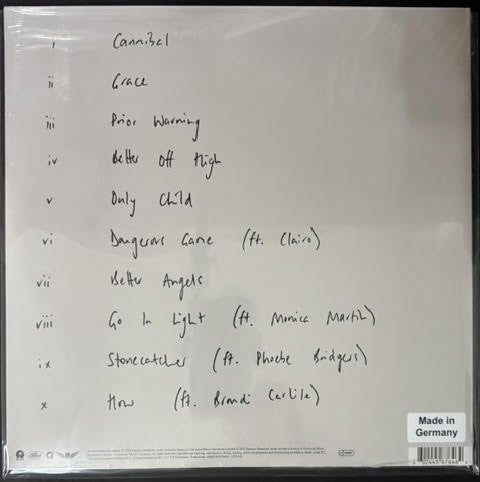 i Cannibal
ii Grace
iii Prior Warning
iv Better Off High
v Only Child
vi Dangerous Game (ft. Clairo)
vii Better Angels
viii Go In Light (ft. Monica Martin)
ix Stonecatcher (ft. Phoebe Bridgers)
x How (ft. Brandi Carlile)
Made in
Germany